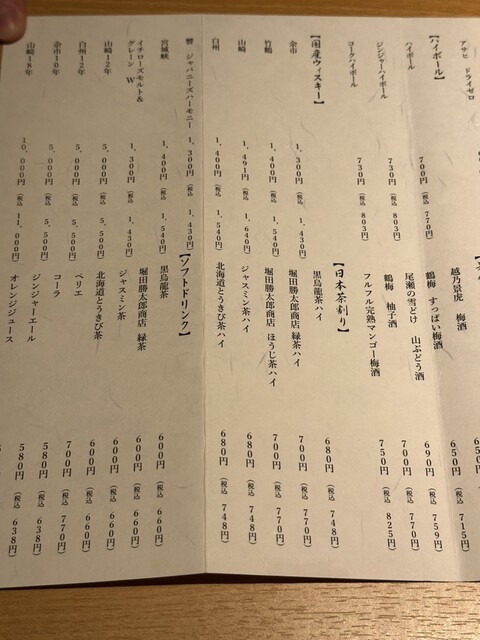 アサヒ ドライゼロ
【ハイボール】
ハイボール 700円 (税込 770円)
ジンジャーハイボール 730円 (税込 803円)
コークハイボール 730円 (税込 803円)
【国産ウィスキー】
余市 1,300円 (税込 1,430円)
竹鶴 1,400円 (税込 1,540円)
山崎 1,491円 (税込 1,640円)
白州 1,400円 (税込 1,540円)
響 ジャパニーズハーモニー 1,300円 (税込 1,430円)
宮城峡 1,400円 (税込 1,540円)
イチローズモルト&
グレーン W 1,300円 (税込 1,430円)
山崎12年 5,000円 (税込 5,500円)
白州12年 5,000円 (税込 5,500円)
余市10年 5,000円 (税込 5,500円)
山崎18年 10,000円 (税込 11,000円)
越乃景虎 梅酒 650円
鶴梅 すっぱい梅酒 650円 (税込 715円)
尾瀬の雪どけ 山ぶどう酒 690円 (税込 759円)
鶴梅 柚子酒 700円 (税込 770円)
フルフル完熟マンゴー梅酒 750円 (税込 825円)
【日本茶割り】
黒烏龍茶ハイ 680円 (税込 770円)
堀田勝太郎商店 緑茶ハイ 700円 (税込 770円)
堀田勝太郎商店 ほうじ茶ハイ 700円 (税込 770円)
ジャスミン茶ハイ 680円 (税込 748円)
北海道とうきび茶ハイ 680円 (税込 748円)
【ソフトドリンク】
黒烏龍茶 600円 (税込 660円)
堀田勝太郎商店 緑茶 600円 (税込 660円)
ジャスミン茶 600円 (税込 660円)
北海道とうきび茶 600円 (税込 660円)
ペリエ 700円 (税込 770円)
コーラ 580円 (税込 638円)
ジンジャーエール 580円 (税込 638円)
オレンジジュース